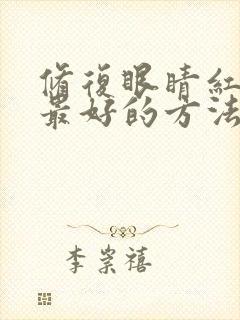 脩復眼睛紅
最好的方法
李崇禧